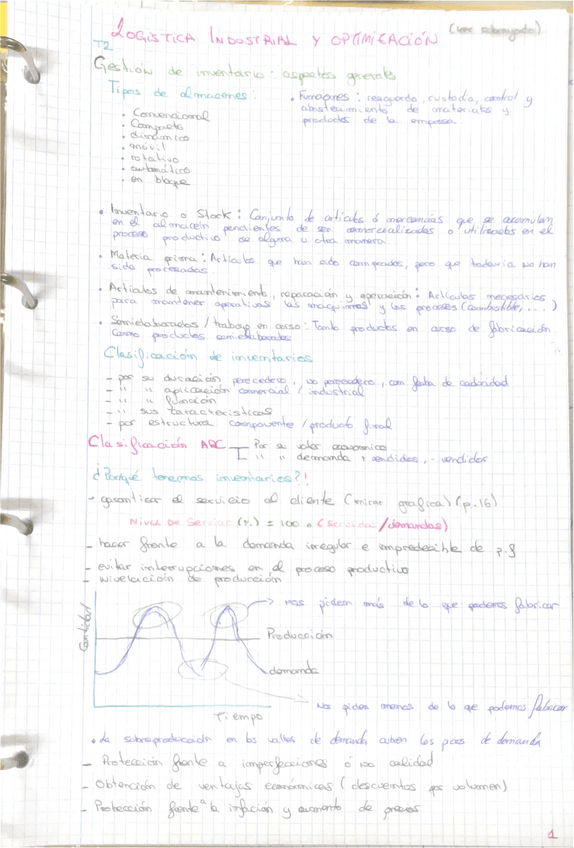 LOGISTICA INDUSTRIAL Y OPTIMIZACIÓN (leer subrayado)
T2
Gestión de inventario: aspectos generales
Tipos de almacenes:
• Funciones: resguardo, custodia, control y
abastecimiento de materiales y
productos de la empresa.
• Convencional
• Compacto
• dinámico
• móvil
• rotativo
• automático
• en bloque
• Inventario o Stock: Conjunto de articulos ó mercancias que se acumulan
en el almacén pendientes de ser comercializados o utilizados en el
proceso productivo de alguna u otra manera
• Materia prima: Articulos que han sido comprados, pero que todavia no han
sido procesados
• Articulos de mantenimiento, reparación y operación: Articulos necesarios
para mantener operativas las maquinas y los procesos (combustible, ....)
• Semielaborados / trabajo en curso: Tanto productos en curso de fabricación
Como productos semielaborados
Clasificación de inventarios
- por su duración perecedero, no perecedero, con fecha de caducidad
- " " aplicación comercial / industrial
- " " función
- " sus caracteristicas
- por estructura componente / producto final
Clasificación ABC Por su valor economico
" " demanda + vendidos, - vendidos
¿Porqué tenemos inventarios?!
- garantizar el servicio al cliente (mirar grafica) (p.16)
Nivel de Servicio (%) = 100 • (Servidas / demandas)
- hacer frente a la demanda irregular e impredecible de p.f
- evitar interrupciones en el proceso productivo
- nivelación de producción
Cantidad
→ nos piden más de lo que podemos fabricar
Producción
demanda
Nos piden menos de lo que podemos fabricar
Tiempo
• La sobreproducción en los valles de demanda cubren los picos de demanda
- Protección frente a imperfecciones ó no calidad
- Obtención de ventajas económicas (descuentos por volumen)
- Protección frente a la inflación y aumento de precios
1